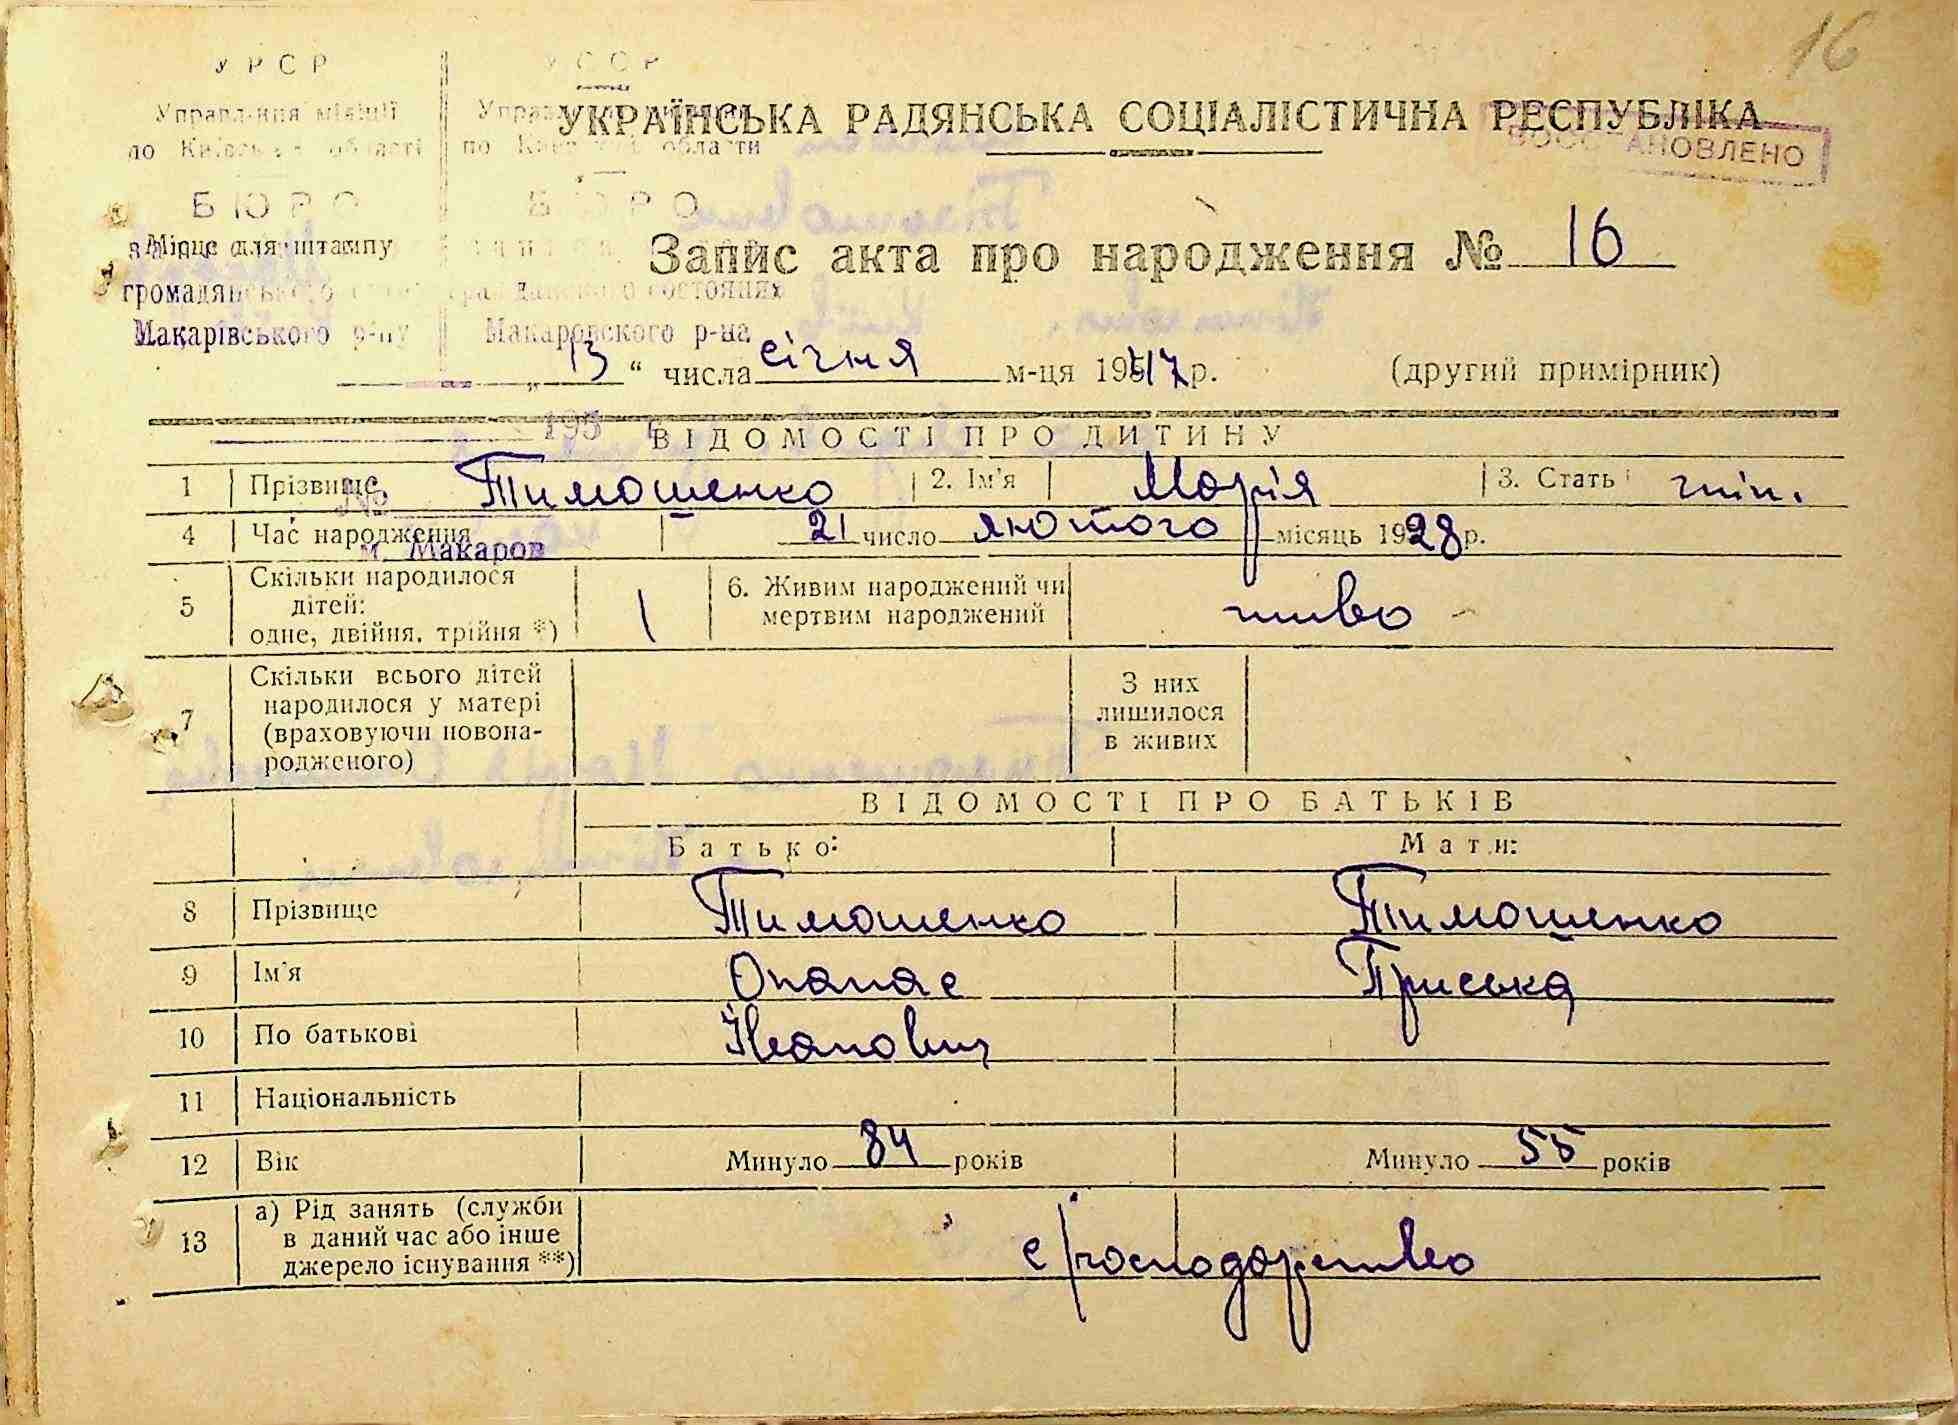 16
УРСР УССР
Управління міліції Управ
УКРАЇНСЬКА РАДЯНСЬКА СОЦІАЛІСТИЧНА РЕСПУБЛІКА
по Київській області по Киевской области
ВОССТАНОВЛЕНО
БЮРО БЮРО
Місце для штампу
Запис акта про народження № 16
громадянського гражданского состояния
Макарівського р-ну Макаровского р-на
„13“ числа січня м-ця 1947 р. (другий примірник)
195
ВІДОМОСТІ ПРО ДИТИНУ
1 Прізвище Тимошенко 2. Ім'я Марія 3. Стать жін.
№
4 Час народження 21 число лютого місяць 1928 р.
м. Макаров
5 Скільки народилося
дітей:
одне, двійня, трійня *) 1 6. Живим народжений чи
мертвим народжений живо
7 Скільки всього дітей
народилося у матері
(враховуючи новона-
родженого) З них
лишилося
в живих
ВІДОМОСТІ ПРО БАТЬКІВ
Батько: Мати:
8 Прізвище Тимошенко Тимошенко
9 Ім'я Опанас Приська
10 По батькові Іванович
11 Національність
12 Вік Минуло 84 років Минуло 55 років
13 а) Рід занять (служби
в даний час або інше
джерело існування **) с/господарство